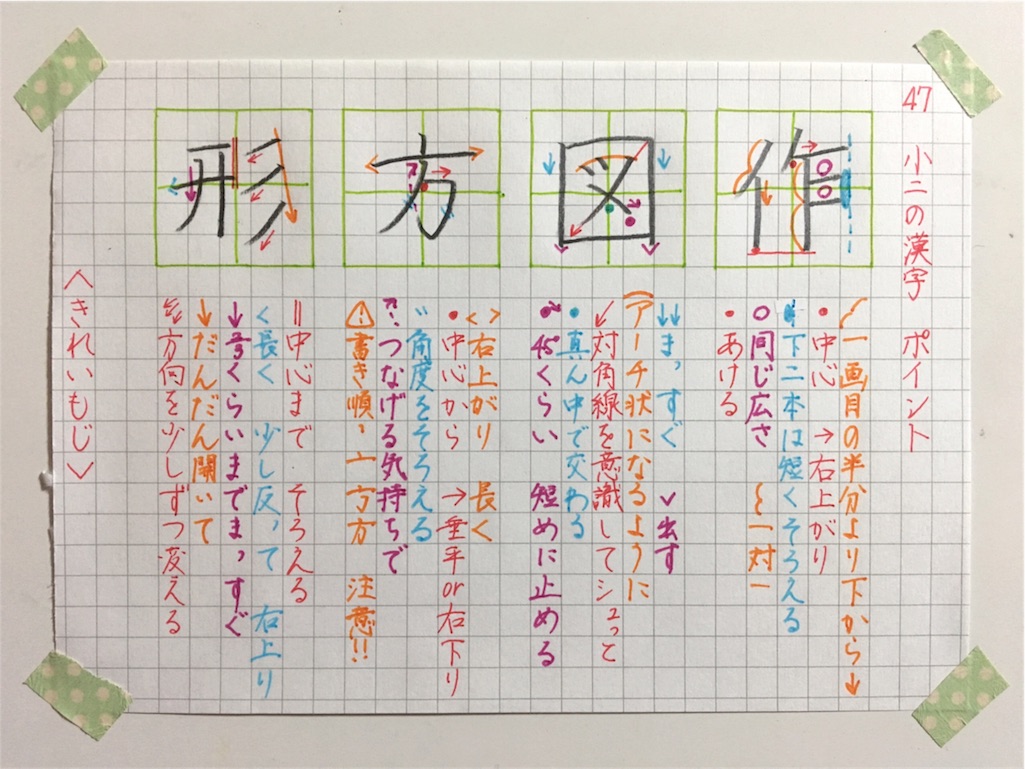 47 小二の漢字 ポイント
作
図
方
形
一画目の半分より下から↓
・中心 →右上がり
下二本は短くそろえる
○同じ広さ 一対一
・あける
↓↓まっすぐ ∨出す
アーチ状になるように
↙対角線を意識してシュッと
・真ん中で交わる
45°くらい 短めに止める
<>右上がり 長く
・中心から →垂平or右下り
角度をそろえる
つなげる気持ちで
⚠書き順、亠方方 注意!!
||中心まで そろえる
<長く 少し反って 右上り
↓くらいまでまっすぐ
↓だんだん開いて
方向を少しずつ変える
<きれいもじ>